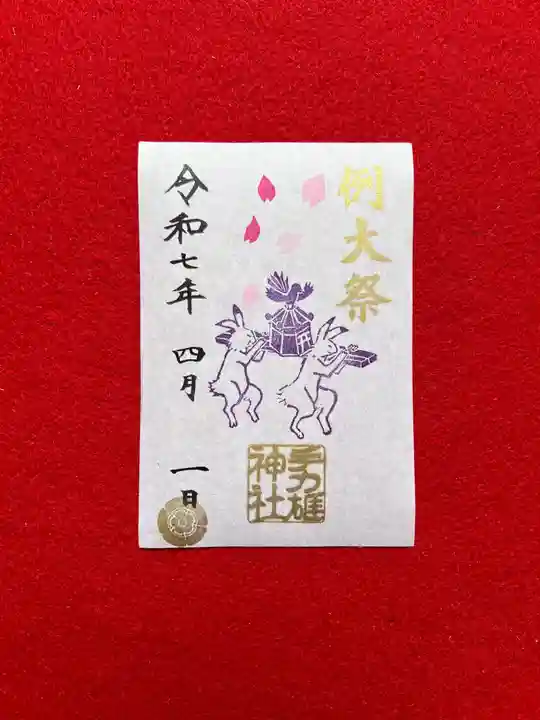 例大祭
手力雄
神社
令和七年 四月 一日